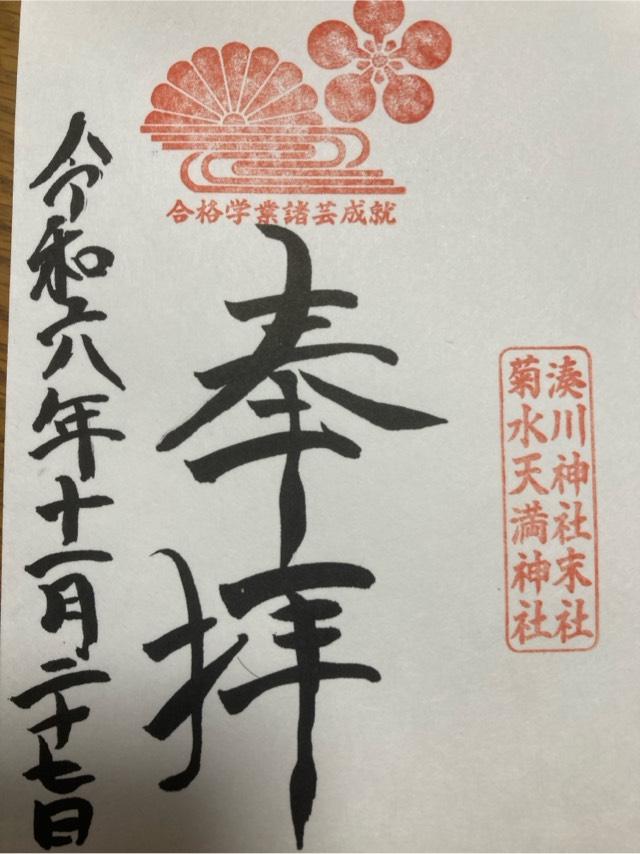 湊川神社末社
菊水天満神社
合格学業諸芸成就
奉拝
令和六年十一月二十七日